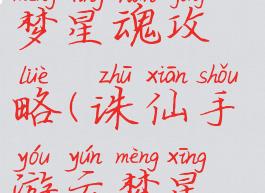 梦星魂攻
lüè zhū xiān shǒu
略(诛仙手
yóu yún mèng xīng
游云梦星